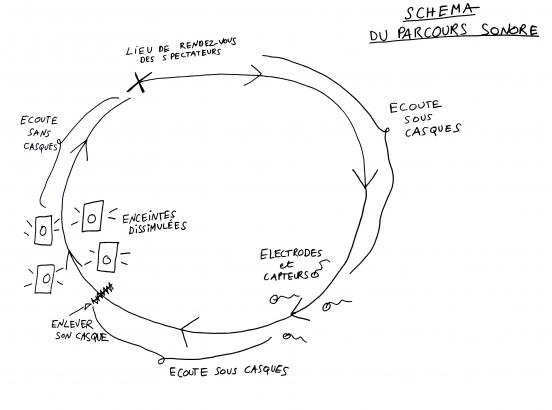 SCHEMA
DU PARCOURS SONORE
LIEU DE RENDEZ-VOUS
DES SPECTATEURS
ECOUTE
SOUS
CASQUES
ECOUTE
SANS
CASQUES
ENCEINTES
DISSIMULÉES
ELECTRODES
et
CAPTEURS
ENLEVER
SON CASQUE
ECOUTE SOUS CASQUES